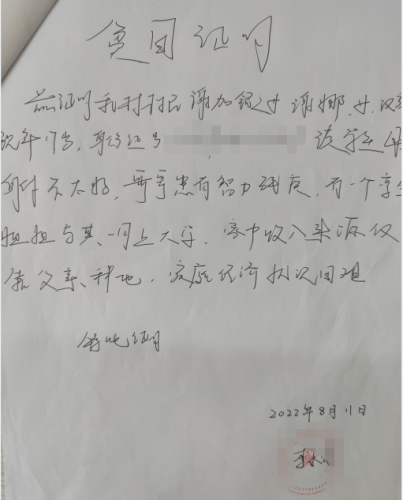 贫困证明
兹证明我村村民谢加银之女谢娜,女,汉族
现年17岁,身份证号 该学生母
身体不太好,哥哥患有智力残疾,有一个亲生
姐姐与其一同上大学.家中收入来源仅
靠父亲种地,家庭经济状况困难
特此证明
2022年8月11日